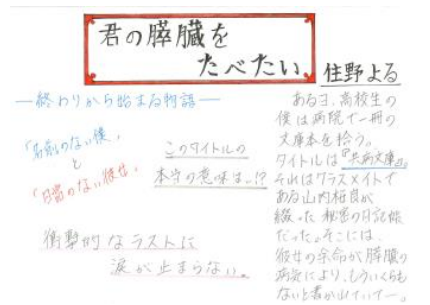 君の膵臓を
たべたい。
住野よる
―終わりから始まる物語―
「名前のない僕」
と
「日常のない彼女」
このタイトルの
本当の意味は..!?
衝撃的なラストに
涙が止まらない。
ある日、高校生の
僕は病院で一冊の
文庫本を拾う。
タイトルは『共病文庫』。
それはクラスメイトで
ある山内桜良が
綴った秘密の日記帳
だった。そこには、
彼女の余命が膵臓の
病気により、もういくらも
ないと書かれていて―。